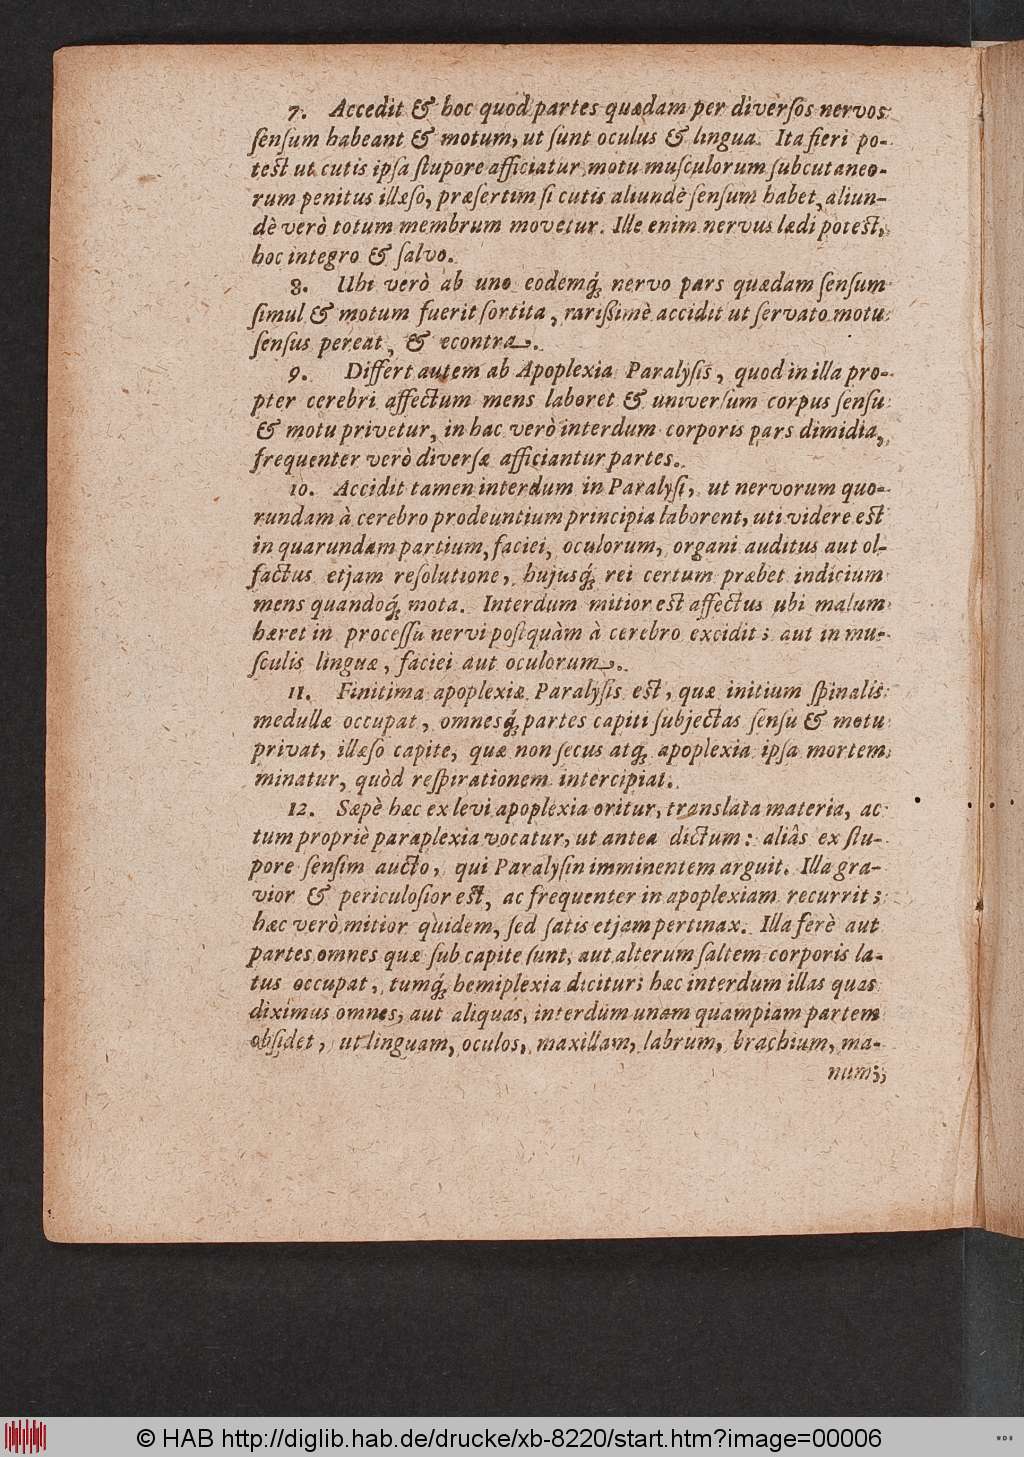 7. Accedit & hoc quod partes quædam per diversos nervos
sensum habeant & motum, ut sunt oculus & lingua. Ita fieri po-
test ut cutis ipsa stupore afficiatur motu musculorum subcutaneo-
rum penitus illæso, præsertim si cutis aliundè sensum habet, aliun-
dè verò totum membrum movetur. Ille enim nervus lædi potest,
hoc integro & salvo.
8. Ubi verò ab uno eodemq́; nervo pars quædam sensum
simul & motum fuerit sortita, rarißimè accidit ut servato motu
sensus pereat, & econtra.
9. Differt autem ab Apoplexia Paralysis, quod in illa pro-
pter cerebri affectum mens laboret & universum corpus sensu
& motu privetur, in hac verò interdum corporis pars dimidia,
frequenter verò diversæ afficiantur partes.
10. Accidit tamen interdum in Paralysi, ut nervorum quo-
rundam à cerebro prodeuntium principia laborent, uti videre est
in quarundam partium, faciei, oculorum, organi auditus aut ol-
factus etjam resolutione, hujusq́; rei certum præbet indicium
mens quandoq́; mota. Interdum mitior est affectus ubi malum
hæret in processu nervi postquàm à cerebro excidit; aut in mu-
sculis linguæ, faciei aut oculorum.
11. Finitima apoplexiæ Paralysis est, quæ initium spinalis
medullæ occupat, omnesq́; partes capiti subjectas sensu & motu
privat, illæso capite, quæ non secus atq́; apoplexia ipsa mortem
minatur, quòd respirationem intercipiat.
12. Sæpè hæc ex levi apoplexia oritur, translata materia, ac
tum propriè paraplexia vocatur, ut antea dictum: aliâs ex stu-
pore sensim aucto, qui Paralysin imminentem arguit. Illa gra-
vior & periculosior est, ac frequenter in apoplexiam recurrit;
hæc verò mitior quidem, sed satis etjam pertinax. Illa ferè aut
partes omnes quæ sub capite sunt, aut alterum saltem corporis la-
tus occupat, tumq́; hemiplexia dicitur; hæc interdum illas quas
diximus omnes, aut aliquas, interdum unam quampiam partem
obsidet, ut linguam, oculos, maxillam, labrum, brachium, ma-
num;
© HAB http://diglib.hab.de/drucke/xb-8220/start.htm?image=00006